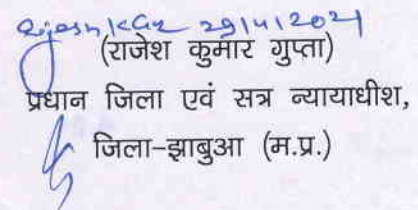 29/4/2021
(राजेश कुमार गुप्ता)
प्रधान जिला एवं सत्र न्यायाधीश,
जिला-झाबुआ (म.प्र.)